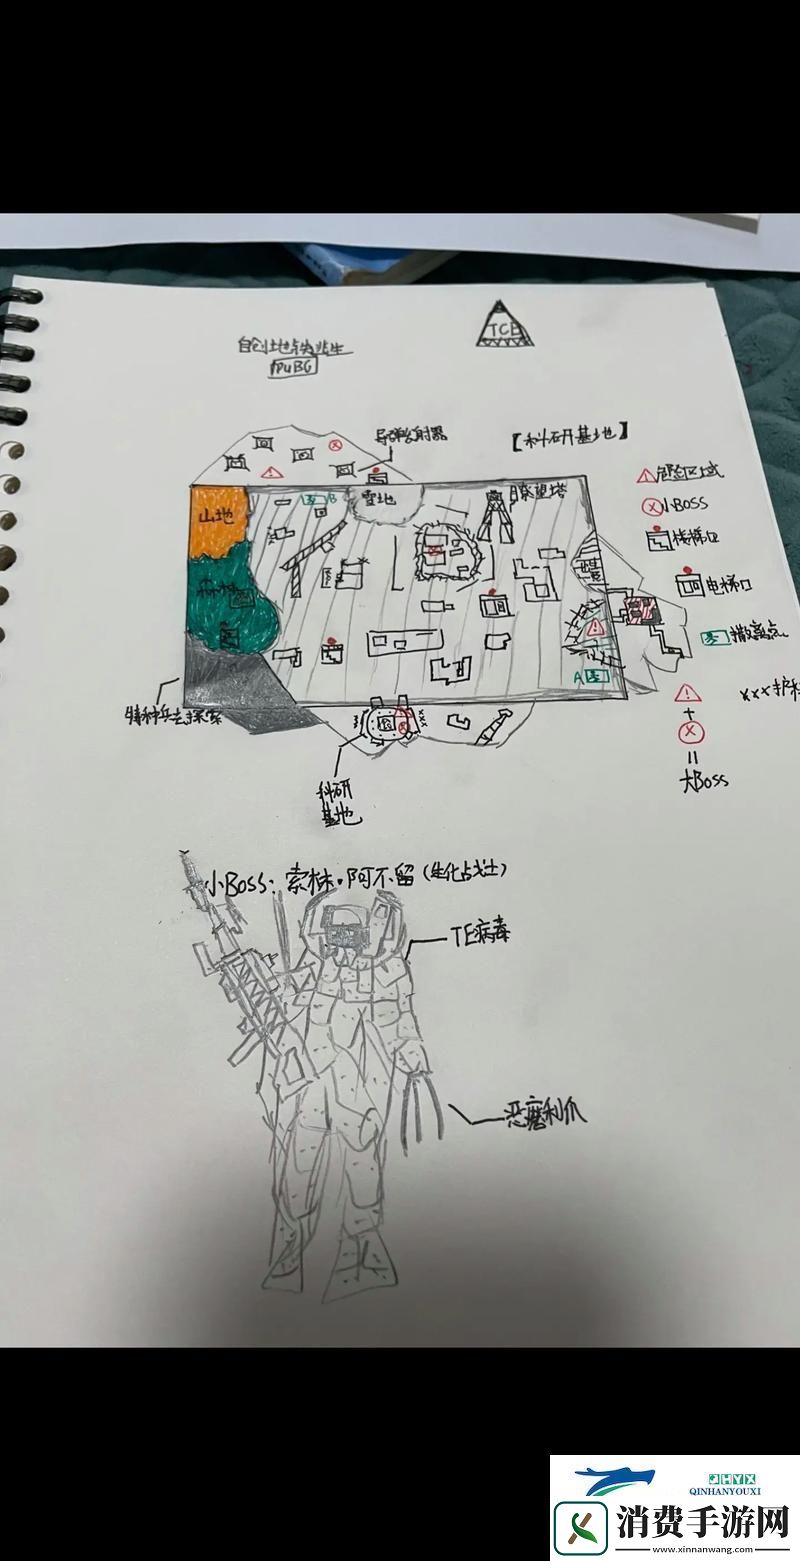 自创地铁逃生
PUBG
TCE
【科研基地】
导弹发射器
B
雪地
瞭望塔
山地
森林
A
特种兵去探索
科研
基地
危险区域
小BOSS
楼梯口
电梯口
撤离点
+
=
大Boss
小Boss：索林·阿不留（生化战士）
TE病毒
恶魔利爪
QHYX
QINHANYOUXI
消费手游网
www.xinnanwang.com